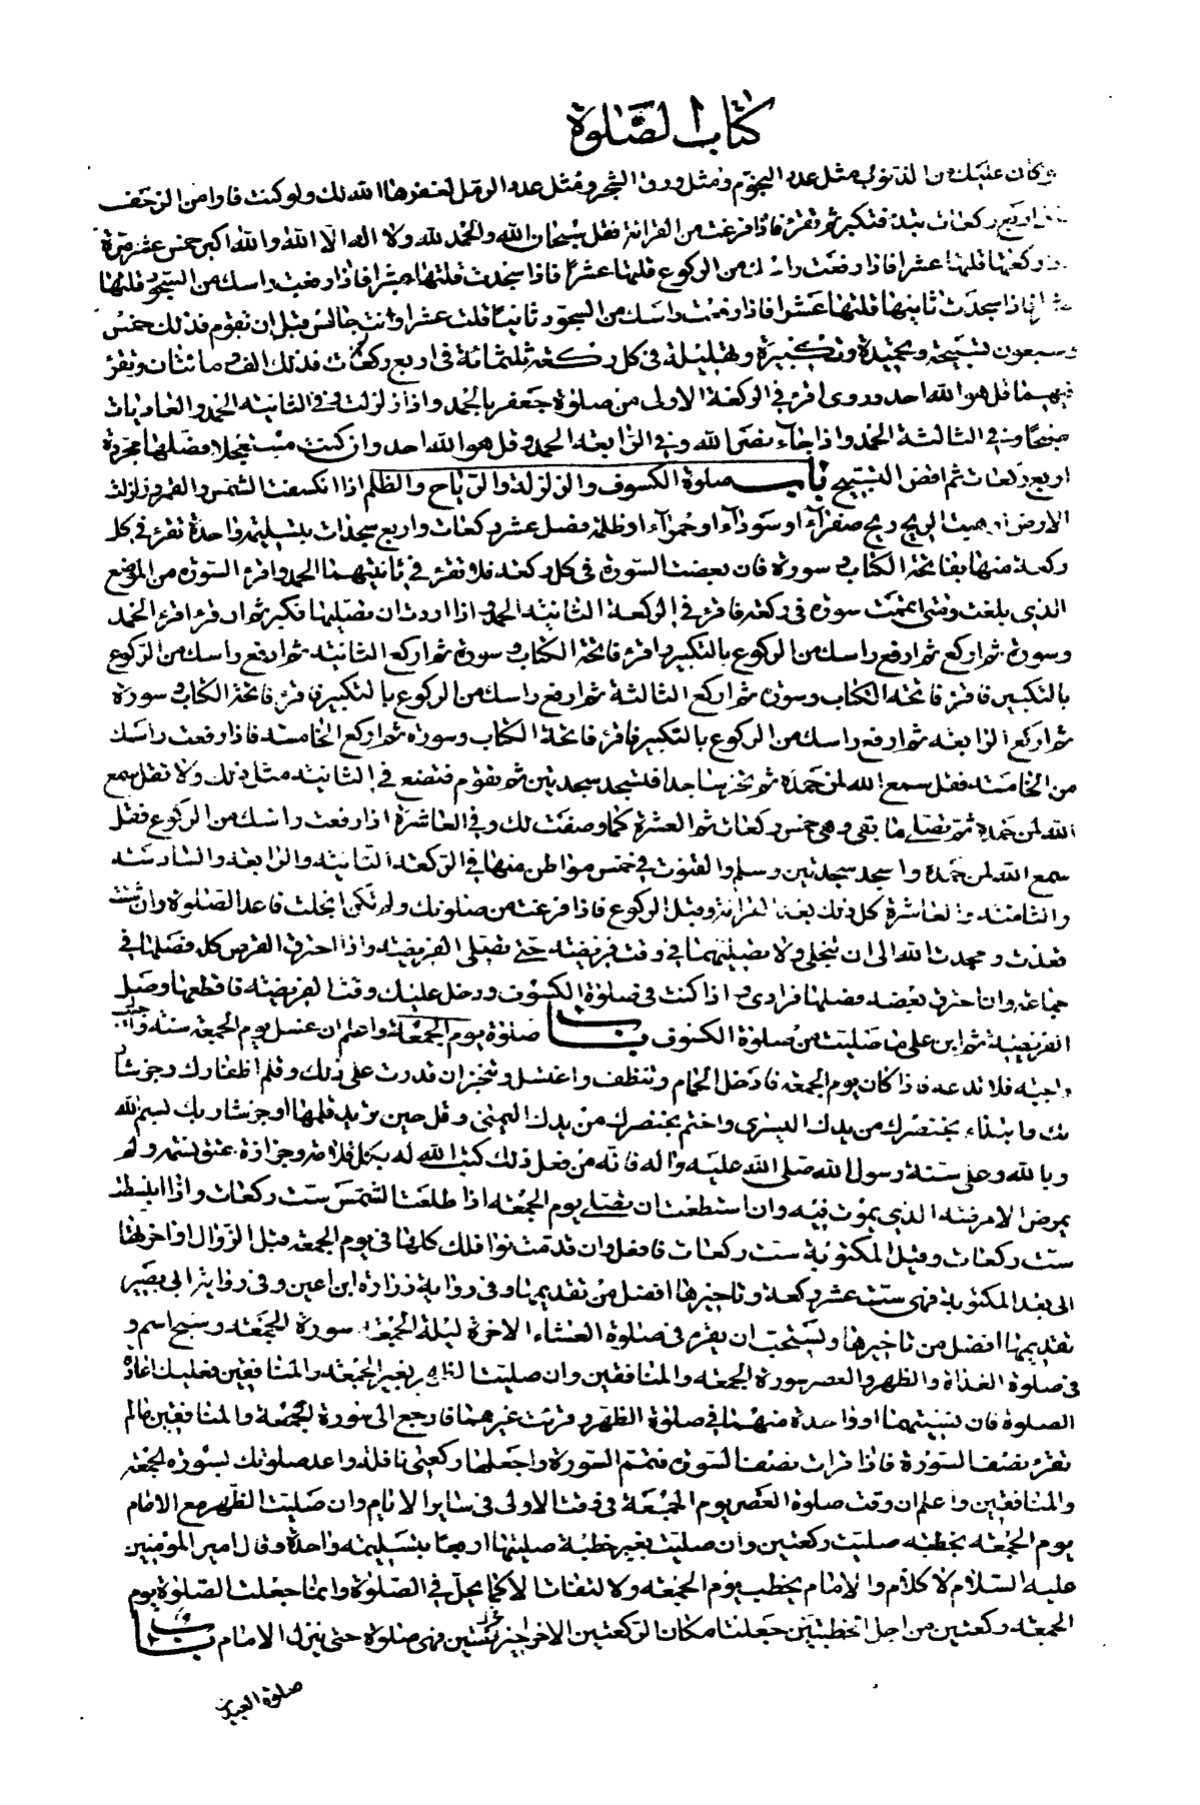 كتاب الصلوة
وكان عليك من الذنوب مثل عدد النجوم ومثل ورق الشجر ومثل عدد الرمل لغفرها الله لك ولو كنت فارا من الزحف
اربع ركعات تبدء فتكبر ثم تقرء فاذا فرغت من القرائة فقل سبحان الله والحمد لله ولا اله الا الله والله اكبر خمس عشر مرة
ركعتها قلتها عشرا فاذا رفعت راسك من الركوع قلتها عشرا فاذا سجدت قلتها عشرا فاذا رفعت راسك من السجود قلتها
فاذا سجدت ثانيتها قلتها عشرا فاذا رفعت راسك من السجود ثانيا قلت عشرا وانت جالس قبل ان تقوم فذلك خمس
وسبعون تسبيحة وتحميدة وتكبيرة وتهليلة فى كل ركعة ثلثمائة فى اربع ركعات فذلك الف ومائتان وتقرء
فيهما قل هو الله احد وروى اقرء فى الركعة الاولى من صلوة جعفر بالحمد واذا زلزلت وفى الثانية الحمد والعاديات
ضبحا وفى الثالثة الحمد واذا جاء نصر الله وفى الرابعة الحمد وقل هو الله احد وان كنت مستعجلا فصلها مجردة
اربع ركعات ثم اقض التسبيح باب صلوة الكسوف والزلزلة والرياح والظلم اذا انكسفت الشمس والقمر وزلزلت
الارض او هبت الريح ريح صفراء او سوداء او حمراء او ظلمة فصل عشر ركعات واربع سجدات بتسليمة واحدة تقرء فى كل
ركعة منها بفاتحة الكتاب و سورة فان بعضت السورة فى كل ركعة فلا تقرء فى ثانيتهما الحمد واقرء السورة من الموضع
الذى بلغت ومتى اتممت سورة فى ركعة فاقرء فى الركعة الثانية الحمد واذا اردت ان تصليها فكبر ثم اقرء الحمد
وسورة ثم اركع ثم ارفع راسك من الركوع بالتكبير واقرء فاتحة الكتاب و سورة ثم اركع الثانية ثم ارفع راسك من الركوع
بالتكبير فاقرء فاتحة الكتاب وسورة ثم اركع الثالثة ثم ارفع راسك من الركوع بالتكبير فاقرء فاتحة الكتاب و سورة
ثم اركع الرابعة ثم ارفع راسك من الركوع بالتكبير فاقرء فاتحة الكتاب و سورة ثم اركع الخامسة فاذا رفعت راسك
من الخامسة فقل سمع الله لمن حمده ثم تخر ساجدا فتسجد سجدتين ثم تقوم فتصنع فى الثانية مثل ذلك ولا تقل سمع
الله لمن حمده ثم تصلى ما بقى وهى خمس ركعات ثم العشرة كما وصفت لك وفى العاشرة اذا رفعت راسك من الركوع فقل
سمع الله لمن حمده واسجد سجدتين وسلم والقنوت فى خمس مواطن منها فى الركعة الثانية والرابعة والسادسة
والثامنة والعاشرة كل ذلك بعد القرائة وقبل الركوع فاذا فرغت من صلوتك ولم تكن انجلت فاعد الصلوة وان شئت
قعدت ومجدت الله الى ان تنجلى ولا تصليهما فى وقت فريضة حتى تصلى الفريضة واذا احترق القرص كله فصلها فى
جماعة وان احترق بعضه فصلها فرادى واذا كنت فى صلوة الكسوف ودخل عليك وقت الفريضة فاقطعها وصل
الفريضة ثم ابن على ما صليت من صلوة الكسوف باب صلوة يوم الجمعة واعلم ان غسل يوم الجمعة سنة
واجبة فلا تدعه فاذا كان يوم الجمعة فادخل الحمام وتنظف واغتسل وتبخر ان قدرت على ذلك وقلم اظفارك وجز شا
بك وابتداء بخنصرك من يدك اليسرى واختم بخنصرك من يدك اليمنى وقل حين تريد قلمها او جز شاربك بسم الله
وبالله وعلى سنة رسول الله صلى الله عليه واله فانه من فعل ذلك كتب الله له بكل قلامة وجزازة عتق نسمة ولم
يمرض الا مرضه الذى يموت فيه وان استطعت ان تصلى يوم الجمعة اذا طلعت الشمس ست ركعات واذا انبسطت
ست ركعات وقبل المكتوبة ست ركعات فافعل وان قدمت نوافلك كلها فى يوم الجمعة قبل الزوال او اخرتها
الى بعد المكتوبة فهى ست عشر ركعة وتاخيرها افضل من تقديمها وفى رواية زرارة ابن اعين وفى رواية ابى بصير
تقديمها افضل من تاخيرها ويستحب ان يقرء فى صلوة العشاء الاخرة ليلة الجمعة سورة الجمعة وسبح اسم و
فى صلوة الغداة والظهر والعصر سورة الجمعة والمنافقين وان صليت الظهر بغير الجمعة والمنافقين فعليك اعادة
الصلوة فان نسيتهما او واحدة منهما فى صلوة الظهر وقرئت غيرهما فارجع الى سورة الجمعة والمنافقين ما لم
تقرء نصف السورة فاذا قرات نصف السورة فتمم السورة واجعلها ركعتى نافلة واعد صلوتك بسورة الجمعة
والمنافقين واعلم ان وقت صلوة العصر يوم الجمعة فى وقت الاولى فى سائر الايام وان صليت الظهر مع الامام
يوم الجمعة بخطبة صليت ركعتين وان صليت بغير خطبة صليتها اربعا بتسليمة واحدة وقال امير المومنين
عليه السلام لا كلام والامام يخطب يوم الجمعة ولا التفات الا كما يحل فى الصلوة وانما جعلت الصلوة يوم
الجمعة ركعتين من اجل الخطبتين جعلتا مكان الركعتين الاخيرتين فهى صلوة حتى ينزل الامام باب
صلوة العيدين